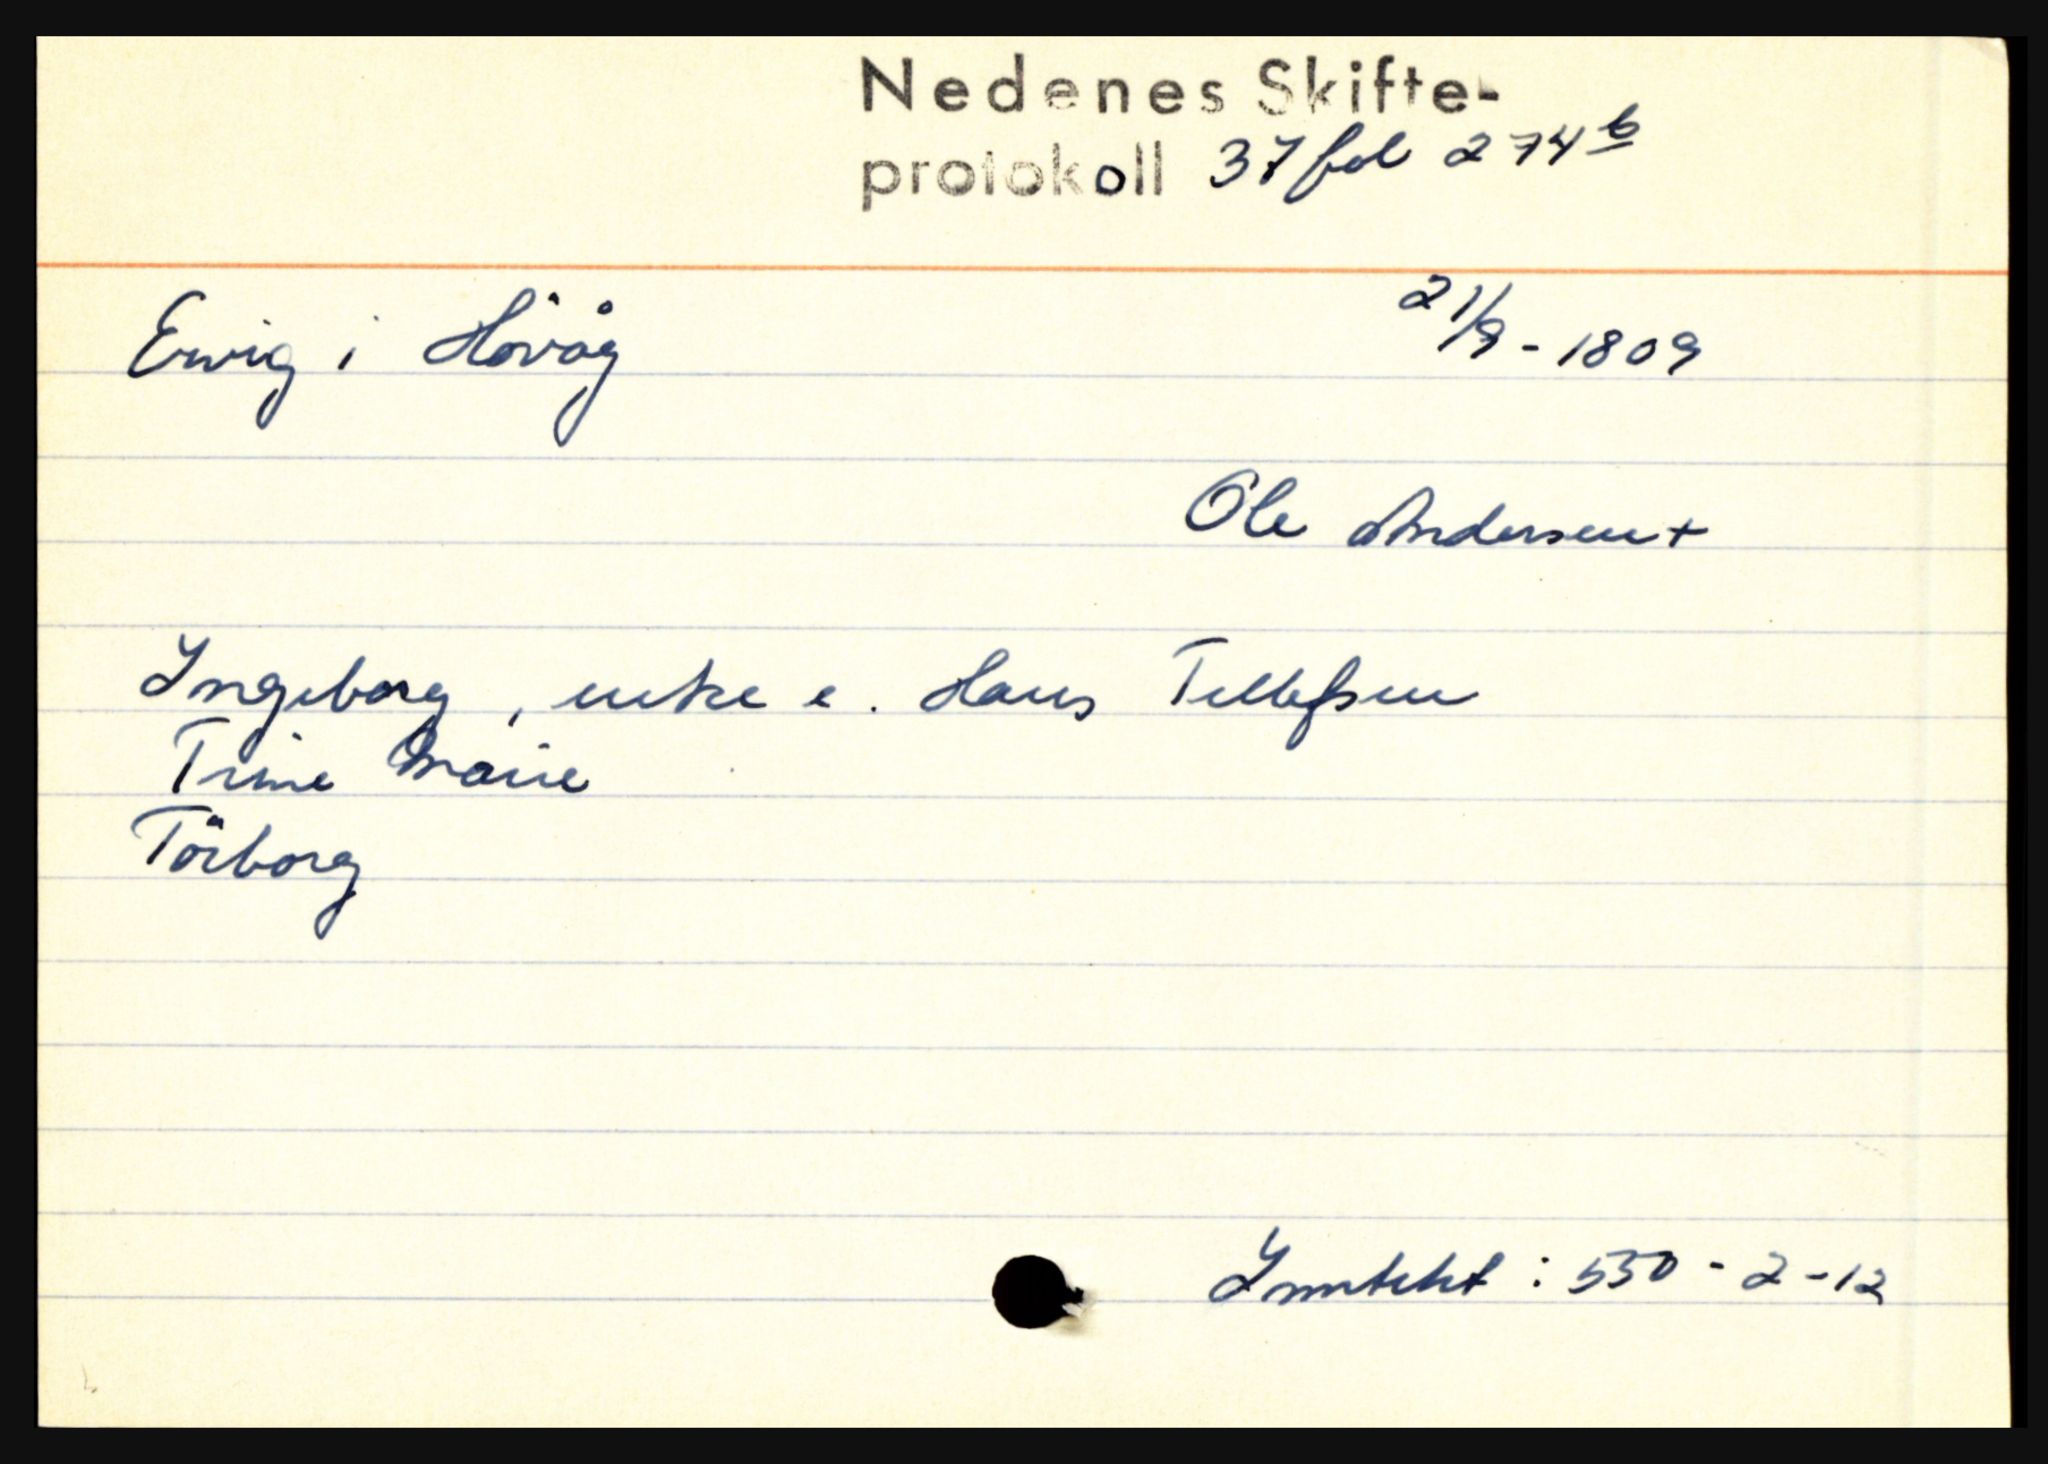 Nedenes Skifte-
protokoll 37 fol 274 b
Ervig i Høvåg 21/9-1809
Ole Andersen +
Ingeborg, enke e. Hans Tellefsen
Trine Marie
Törborg
Inntekt: 550-2-12